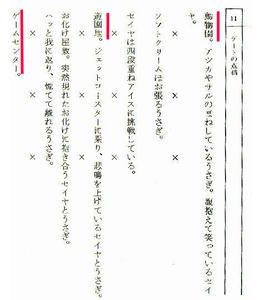 11 デートの点描
動物園。アシカやサルのまねしているうさぎ。腹抱えて笑っているセイ
ヤ。
× × ×
ソフトクリームほお張るうさぎ。
セイヤは四段重ねアイスに挑戦している。
× × ×
遊園地。ジェットコースターに乗り、悲鳴を上げているセイヤとうさぎ。
× × ×
お化け屋敷。突然現れたお化けに抱き合うセイヤとうさぎ。
ハッと我に返り、慌てて離れるうさぎ。
× × ×
ゲームセンター。